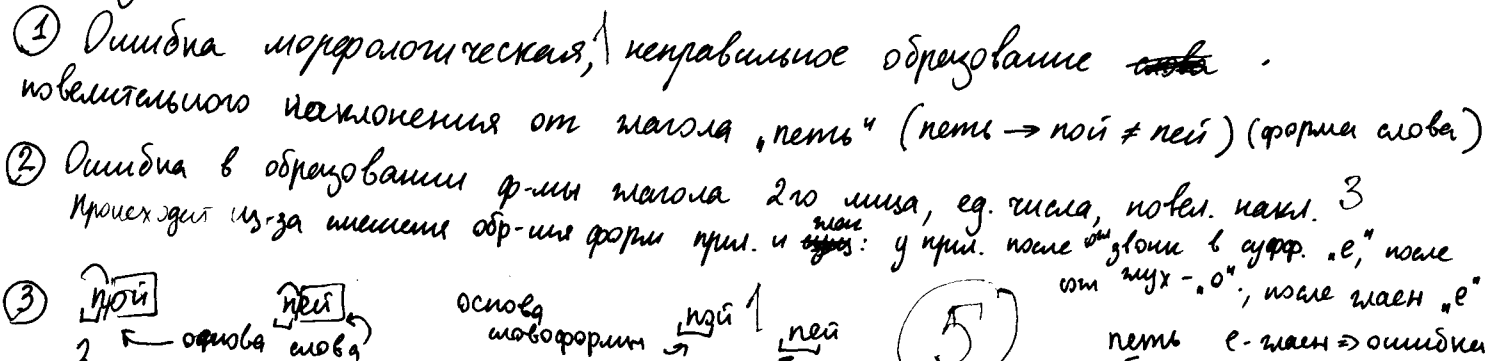 ① Ошибка морфологическая, 1 неправильное образование
повелительного наклонения от глагола „петь“ (петь → пой ≠ пей) (форма слова)
② Ошибка в образовании ф-мы глагола 2го лица, ед. числа, повел. накл. 3
Происходит из-за смешения обр-ния форм прил. и глаг: у прил. после звонк в суфф. „е“, после
глух - „о“, после гласн „е“
③ пой пей основа словоформы пой 1 пей 5
← основа слова петь е-гласн ⇒ ошибка